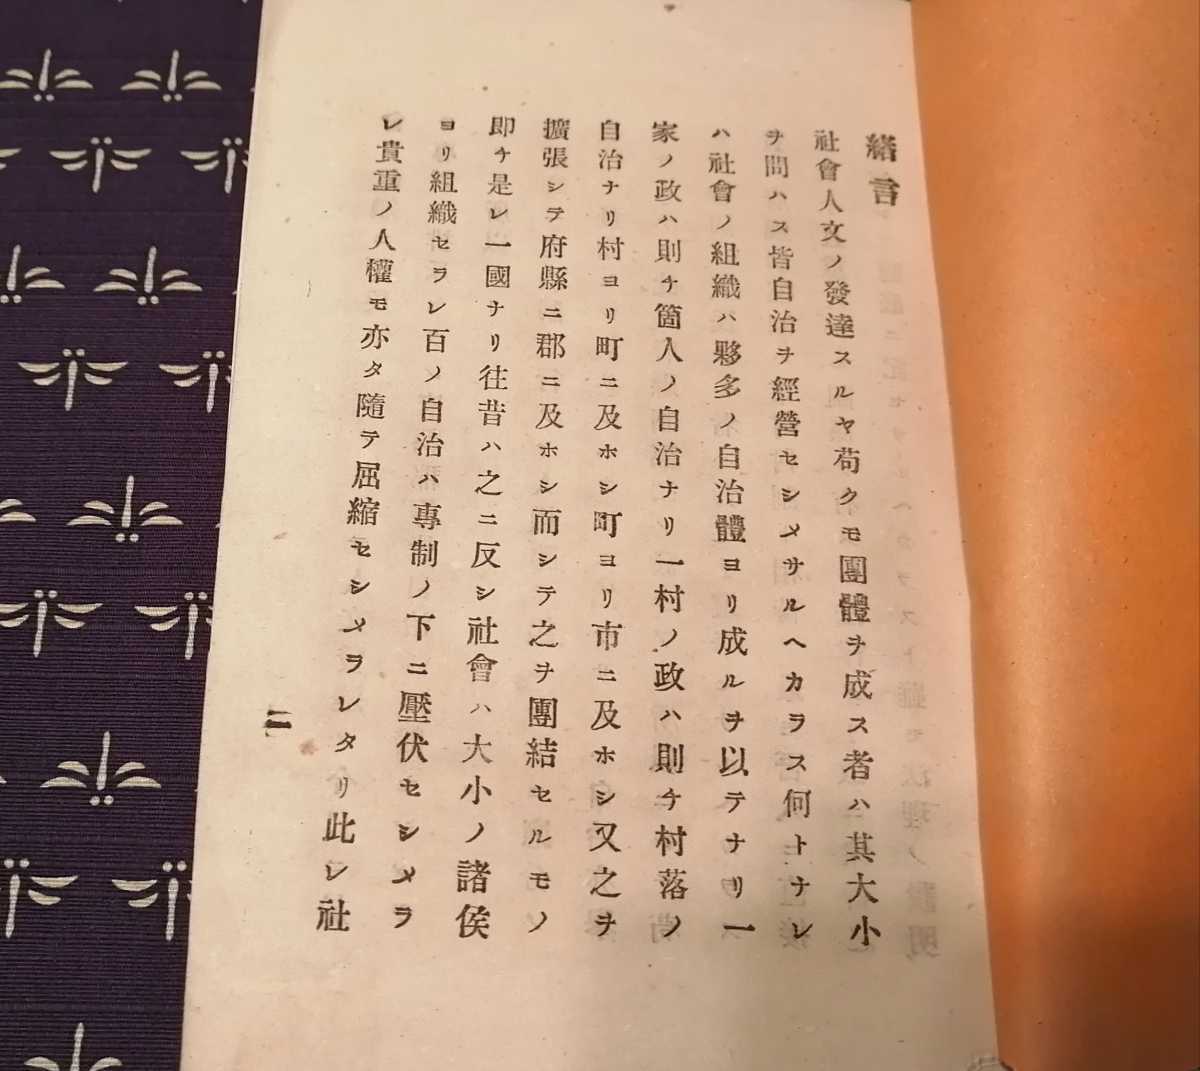 緒言
社會人文ノ發達スルヤ苟クモ團體ヲ成ス者ハ其大小
ヲ問ハス皆自治ヲ經營セシメサルヘカラス何トナレ
ハ社會ノ組織ハ夥多ノ自治體ヨリ成ルヲ以テナリ一
家ノ政ハ則チ箇人ノ自治ナリ一村ノ政ハ則チ村落ノ
自治ナリ村ヨリ町ニ及ホシ町ヨリ市ニ及ホシ又之ヲ
擴張シテ府縣ニ郡ニ及ホシ而シテ之ヲ團結セルモノ
即チ是レ一國ナリ往昔ハ之ニ反シ社會ハ大小ノ諸侯
ヨリ組織セラレ百ノ自治ハ專制ノ下ニ壓伏セシメラ
レ貴重ノ人權モ亦タ隨テ屈縮セシメラレタリ此レ社